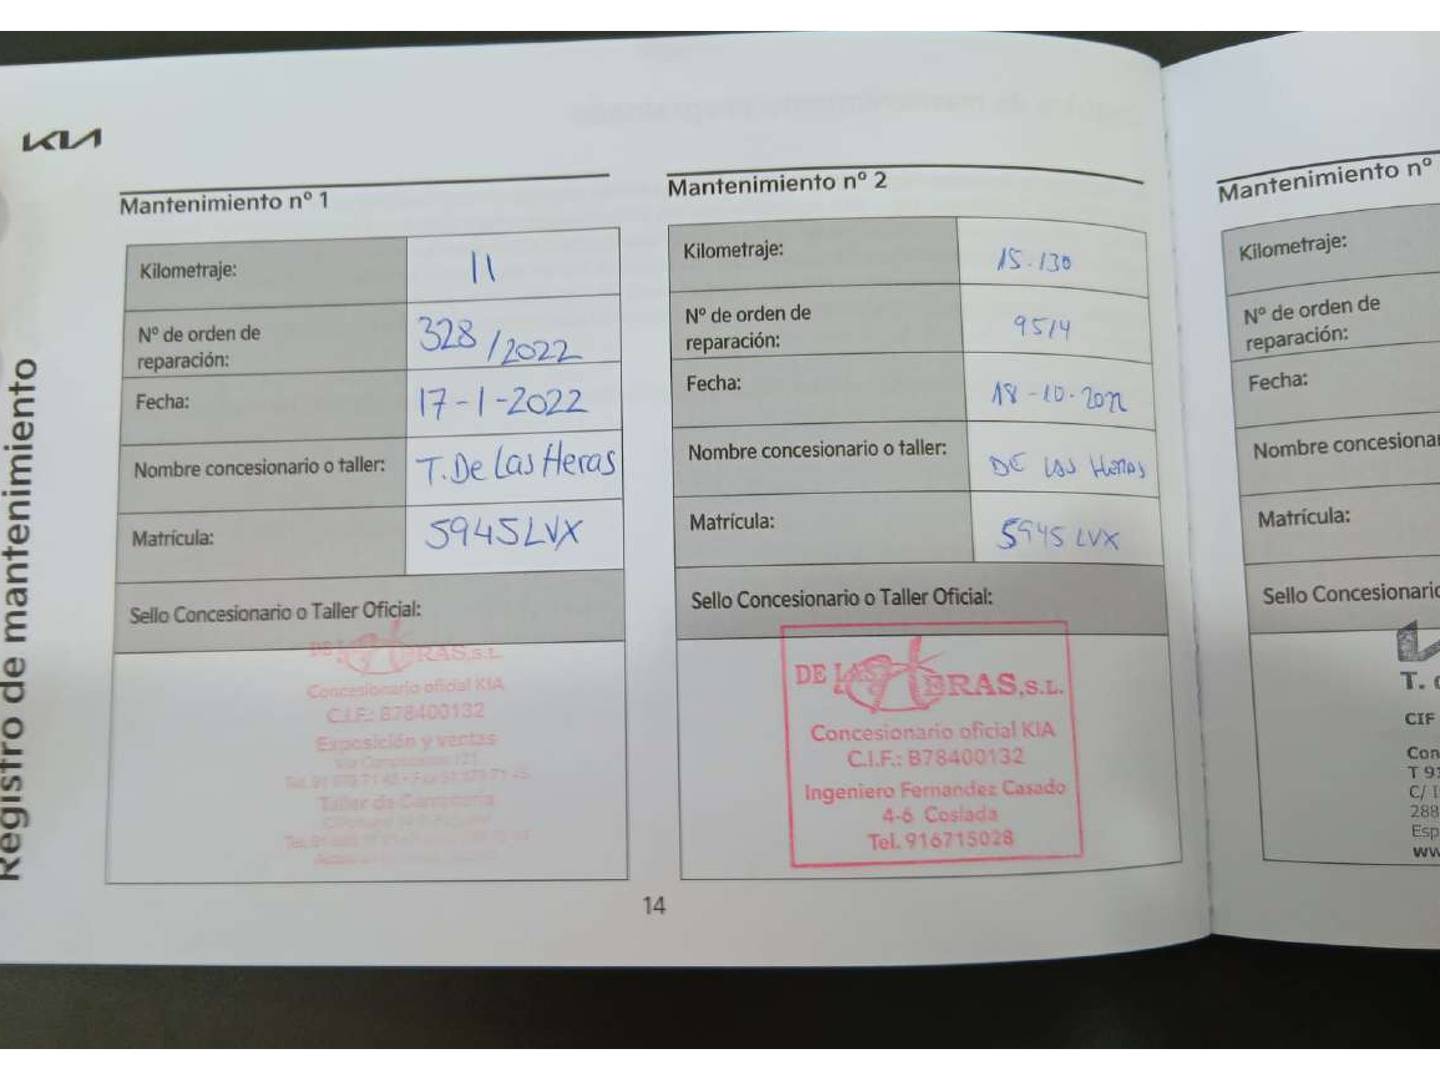 KIA
Registro de mantenimiento
Mantenimiento nº 1
Kilometraje: 11
Nº de orden de
reparación: 328/2022
Fecha: 17-1-2022
Nombre concesionario o taller: T. De Las Heras
Matrícula: 5945LVX
Sello Concesionario o Taller Oficial:
DE LAS HERAS,S.L.
Concesionario oficial KIA
C.I.F.: B78400132
Exposición y ventas
Taller de Carrocería
Mantenimiento nº 2
Kilometraje: 15.130
Nº de orden de
reparación: 9514
Fecha: 18-10-2022
Nombre concesionario o taller: DE LAS HERAS
Matrícula: 5945 LVX
Sello Concesionario o Taller Oficial:
DE LAS HERAS,S.L.
Concesionario oficial KIA
C.I.F.: B78400132
Ingeniero Fernandez Casado
4-6 Coslada
Tel. 916715028
14
Mantenimiento nº
Kilometraje:
Nº de orden de
reparación:
Fecha:
Nombre concesionar
Matrícula:
Sello Concesionario
T.
CIF
Con
T 91
C/ I
288
Esp
ww